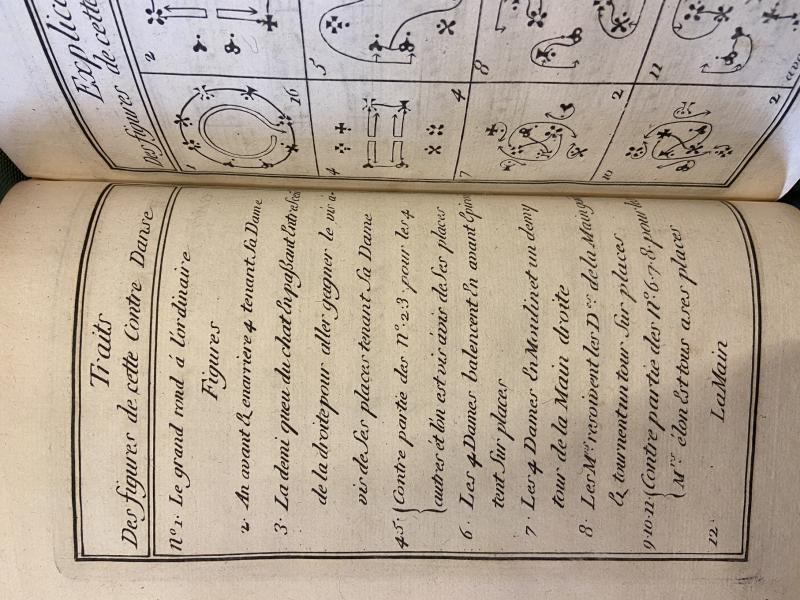 Traits
Des figures de cette Contre Danse
nº 1. Le grand rond á Lordinaire
Figures
2. An avant & enarriere 4 tenant sa Dame
3. La demi queu du chat En passant Entre
de la droite pour aller gagner le vis a
vis de ses places tenant sa Dame
4.5. Contre partie des nº. 2.3. pour les 4
autres et lon est vis avis de ses places
6. Les 4 Dames balencent En avant
tent sur places
7. Les 4 Dames En Moulinet un demy
tour de la Main droite
8. Les Mrs. reçoivent les Des. de la Main
& tournent un tour sur places
9.10.11. Contre partie des nº. 6.7.8. pour les
Mrs. élon Est tous a ses places
12. La Main
Des figures de cette
1
16
2
4
4
5
7
2
8
10
2
11